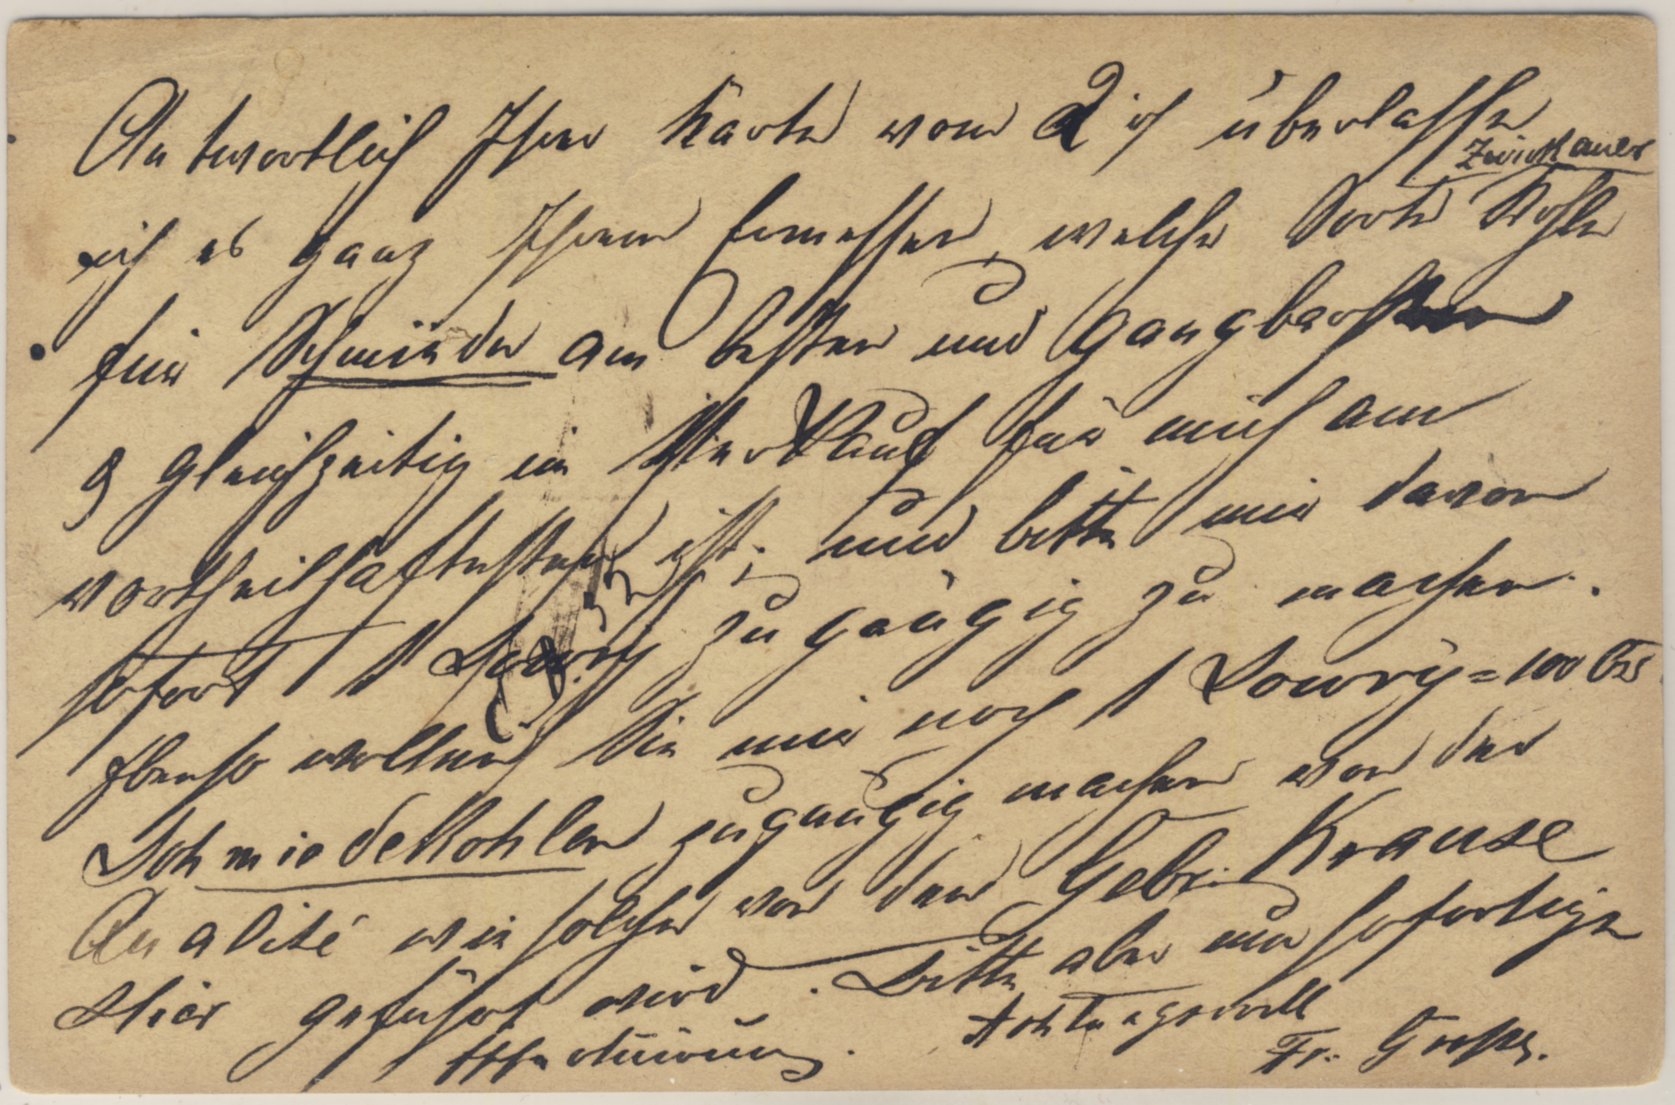 Antwortlich Ihrer Karte vom 2 ich überlasse
Zwickauer
ich es ganz Ihrem Ermessen, welche Sorte Kohle
für Schmiede am besten und gangbarsten
& gleichzeitig im Verkauf für mich am
vortheilhaftesten ist; und bitte mir davon
sofort 1 Lowry zugängig zu machen.
Ebenso wollen Sie mir noch 1 Lowry = 100 Ctr
Schmiedekohlen zugängig machen von der
Qualité wie solche von den Gebr. Krause
Hier geführt wird. Bitte aber um sofortige
Effectuirung. Achtungsvoll
Fr. Große.